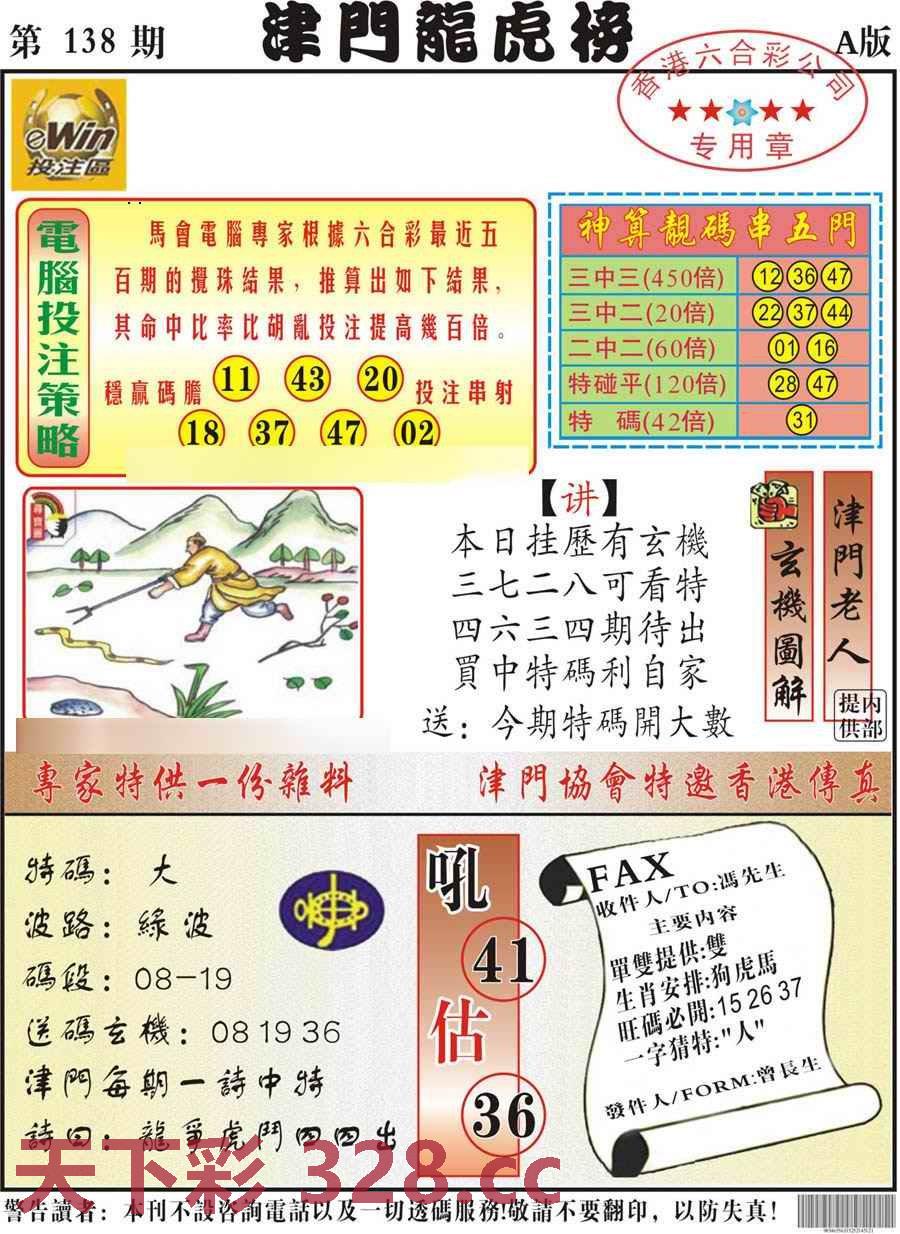 第 138 期
津門龍虎榜
A版
香港六合彩公司
专用章
eWin
投注區
電腦投注策略
馬會電腦專家根據六合彩最近五
百期的攪珠結果，推算出如下結果，
其命中比率比胡亂投注提高幾百倍。
穩贏碼膽 11 43 20 投注串射
18 37 47 02
神算靚碼串五門
三中三(450倍) 12 36 47
三中二(20倍) 22 37 44
二中二(60倍) 01 16
特碰平(120倍) 28 47
特 碼(42倍) 31
尋寶圖
【讲】
本日挂歷有玄機
三七二八可看特
四六三四期待出
買中特碼利自家
送：今期特碼開大數
玄機圖解
津門老人
内部提供
專家特供一份雜料
津門協會特邀香港傳真
特碼：大
波路：綠波
碼段：08-19
送碼玄機：08 19 36
津門每期一詩中特
詩曰：龍爭虎鬥四四出
吼
41
估
36
FAX
收件人/TO:馮先生
主要内容
單雙提供:雙
生肖安排:狗虎馬
旺碼必開:15 26 37
一字猜特:"人"
發件人/FORM:曾長生
天下彩 328.cc
警告讀者：本刊不設咨詢電話以及一切透碼服務!敬請不要翻印，以防失真!